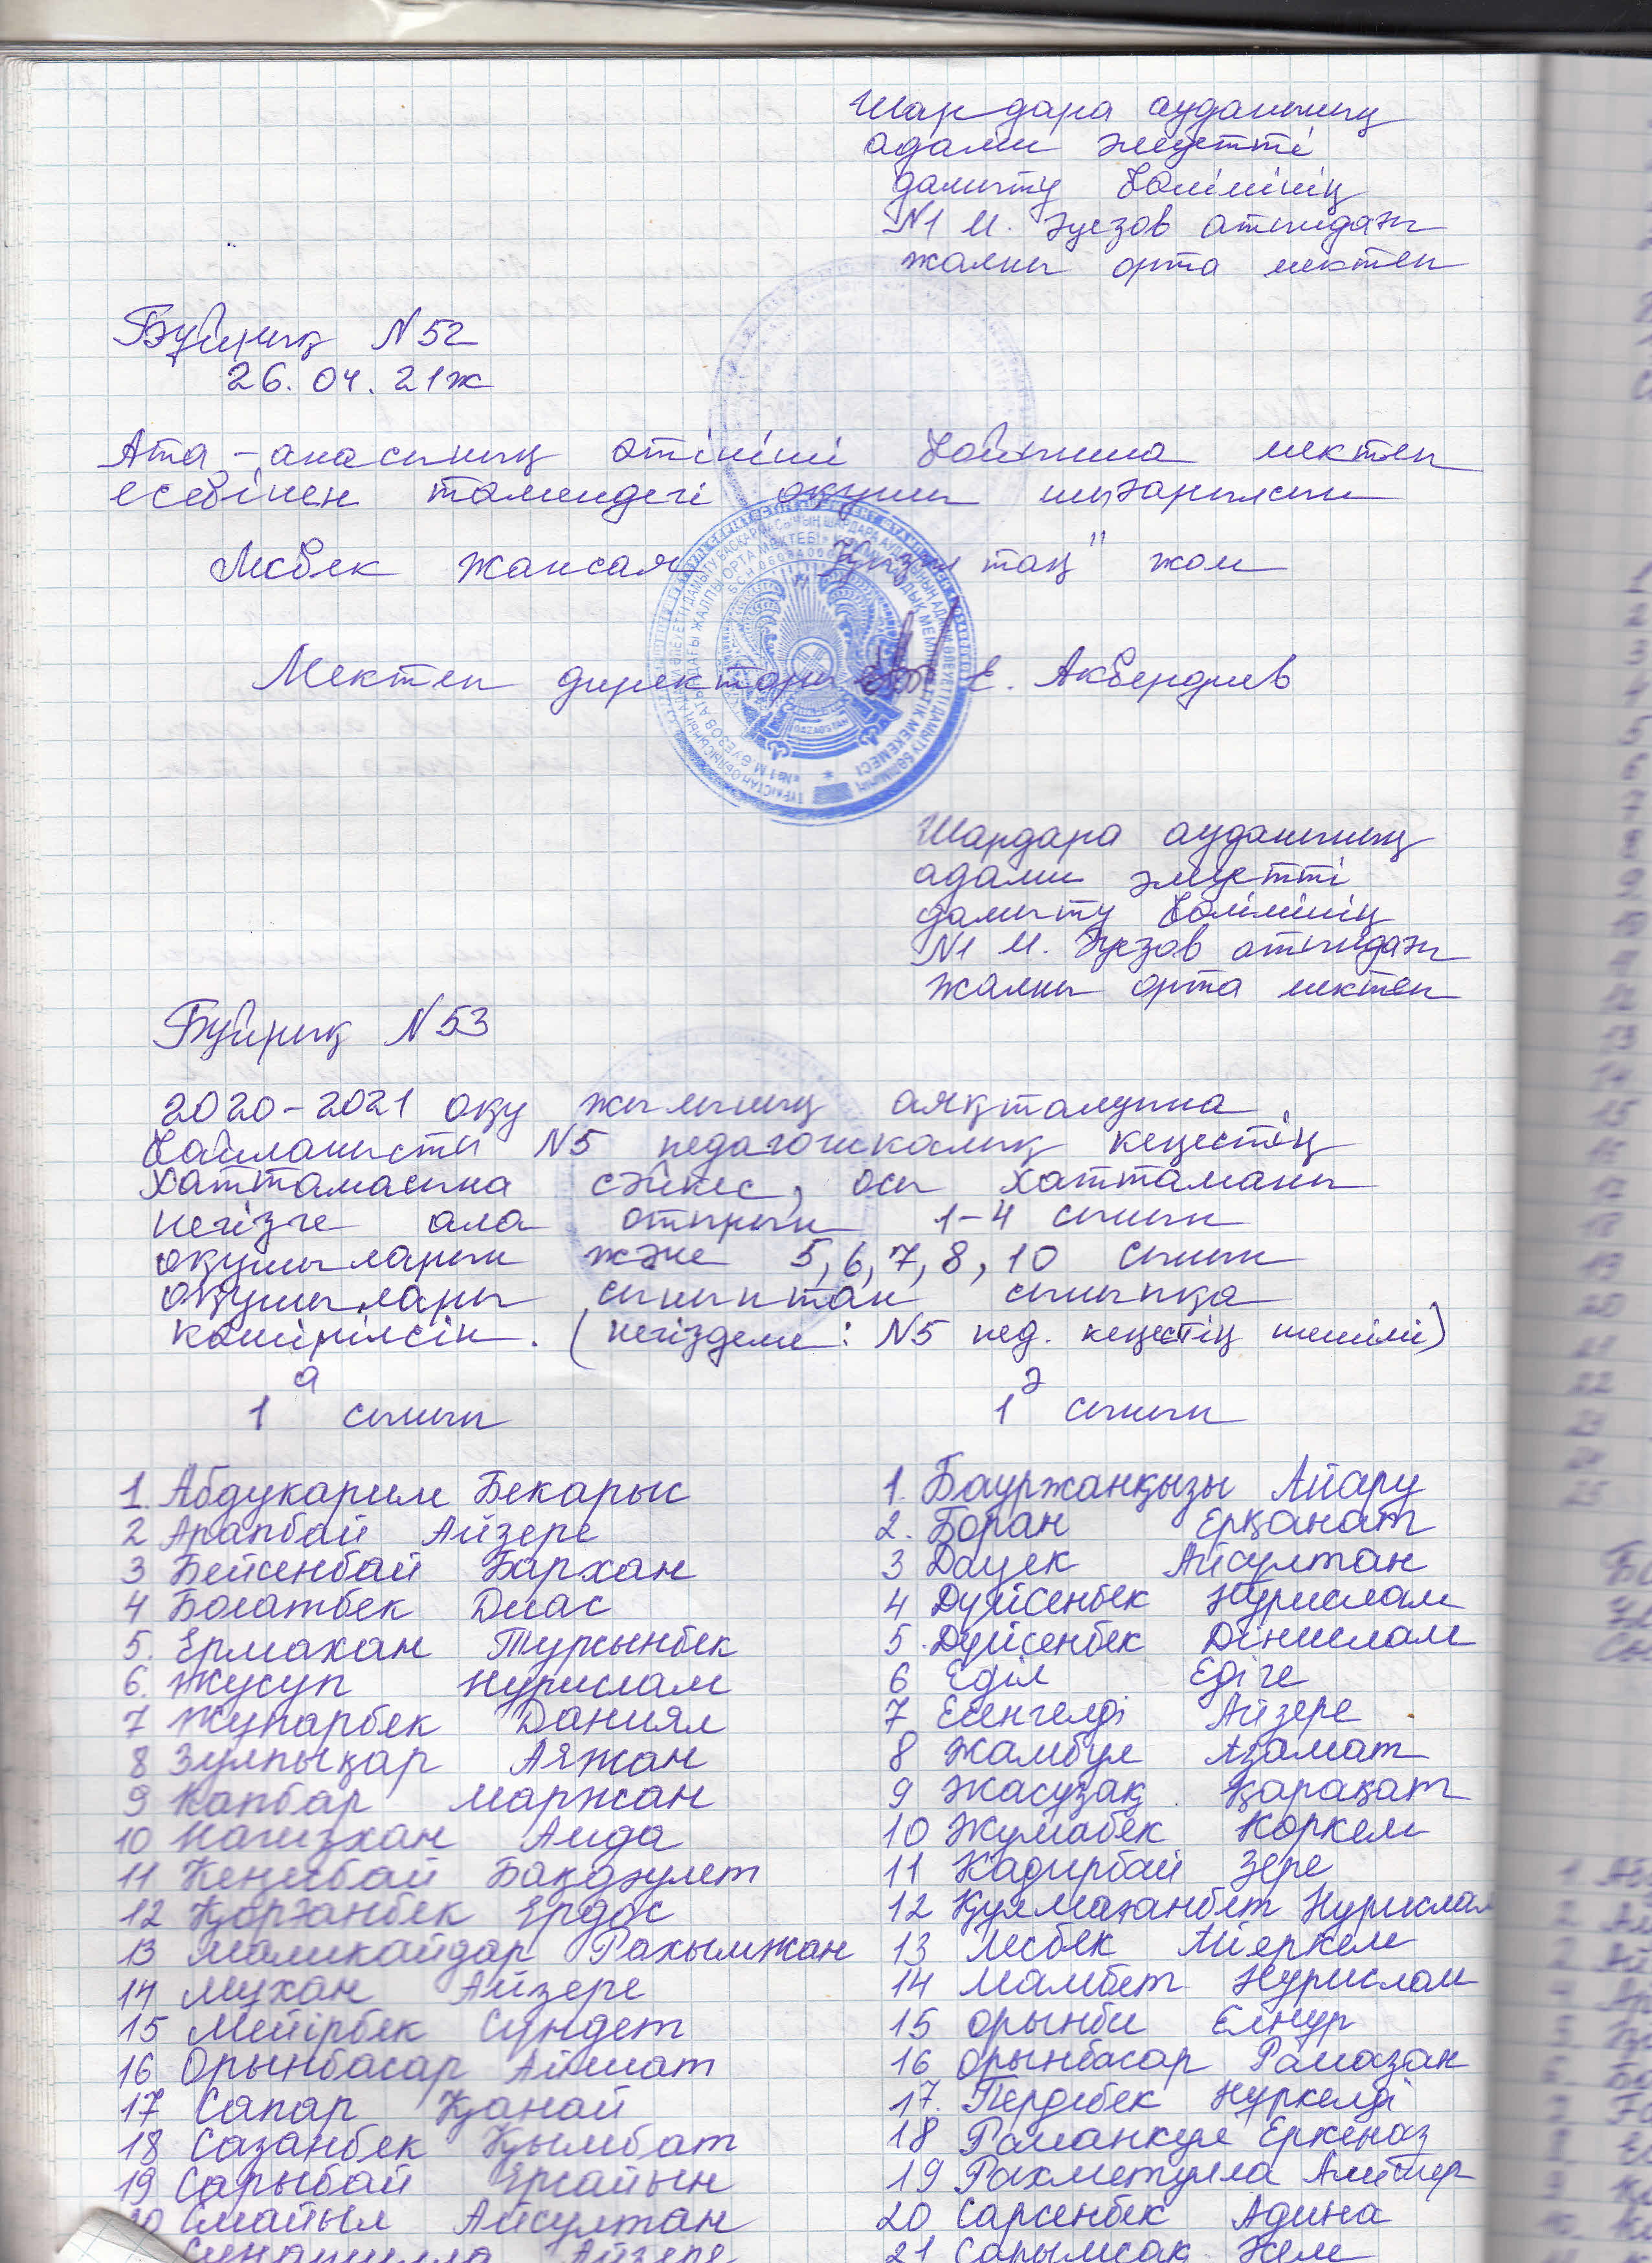 Шардара ауданының
адами әлуетті
дамыту бөлімінің
№1 М. Әуезов атындағы
жалпы орта мектеп
Бұйрық №52
26.04.21ж
Ата-анасының өтініші бойынша мектеп
есебінен төмендегі оқушы шығарылсын
Лесбек Жансая таң" жом
Мектеп директоры Е. Акбердиев
Шардара ауданының
адами әлуетті
дамыту бөлімінің
№1 М. Әуезов атындағы
жалпы орта мектеп
Бұйрық №53
2020-2021 оқу жылының аяқталуына
байланысты №5 педагогикалық кеңестің
хаттамасына сәйкес, осы хаттаманы
негізге ала отырып 1-4 сынып
оқушыларын және 5, 6, 7, 8, 10 сынып
оқушылары сыныптан сыныпқа
көшірілсін. (негіздеме: №5 пед. кеңестің шешімі)
1 а сынып
1. Абдукарим Бекарыс
2 Арапбай Айзере
3 Бейсенбай Бархан
4 Болатбек Диас
5. Ермахан Турсынбек
6. Жусуп Нурислам
7 Жупарбек Даниял
8 Зулпықар Аяжан
9 Капбар Маржан
10 Нагизхан Аида
11 Кеңесбай Бақдәулет
12 Қорғанбек Ердос
13 Маликайдар Рахымжан
14 Мухан Айзере
15 Мейірбек Сүндет
16 Орынбасар
17 Сапар Қанай
18 Сазанбек Қымбат
19 Сарыбай
20 Смайыл Айсултан
Айзере
1 ә сынып
1. Бауржанқызы Айару
2. Боран Ерқанат
3 Дауек Айсултан
4 Дүйсенбек Нурислам
5. Дүйсенбек Дінислам
6 Еділ Едіге
7 Есенгелді Айзере
8 Жамбул Азамат
9 Жасузақ Қарақат
10 Жумабек Коркем
11 Кадирбай Зере
12 Қулмағанбет Нурислам
13 Лесбек Айеркем
14 Мамбет Нурислам
15 Орынби Елнур
16 Орынбасар Рамазан
17. Пердебек Нуркелді
18 Раманкул Еркеназ
19 Рахметулла Алишер
20 Сарсенбек Адина
21 Сарымсақ